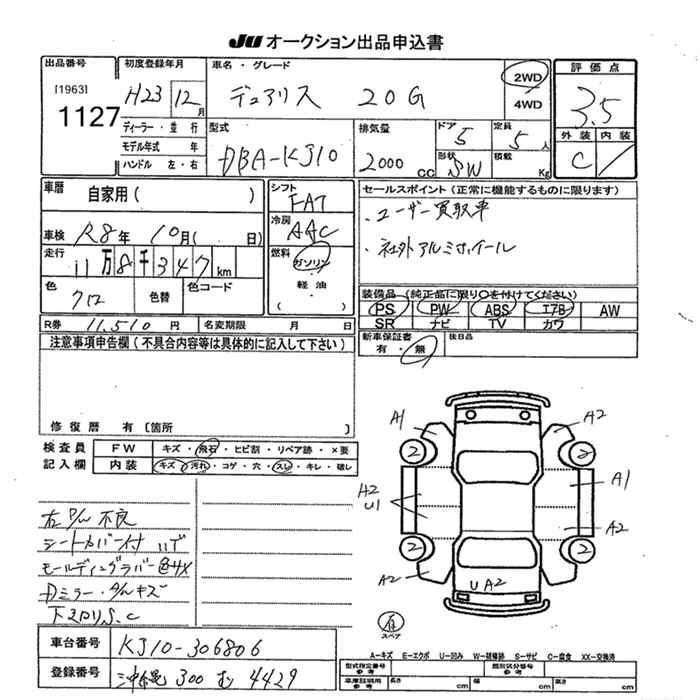 JU オークション出品申込書
出品番号 [1963] 1127
初度登録年月 H23 12月
ディーラー・並行
モデル年式 年
ハンドル 左・右
車名・グレード デュアリス 20G
2WD
4WD
評価点 3.5
外装 内装
C /
型式 DBA-KJ10
排気量 2000 cc
ドア 5
定員 5人
形状 SW
積載 Kg
車歴 自家用( )
車検 R8年 10月( 日)
走行 11万8千347km
色 クロ 色替 色コード
シフト FAT
冷房 AAC
燃料 ガソリン
軽油
( )
R券 11,510 円 名変期限 月 日
セールスポイント (正常に機能するものに限ります)
・ユーザー買取車
・社外アルミホイール
装備品 (純正品に限り○を付けてください)
PS PW ABS エアB AW
SR ナビ TV カワ
新車保証書 有・無
後日品
注意事項申告欄 (不具合内容等は具体的に記入して下さい)
修復歴 有 [箇所 ]
検査員記入欄
FW キズ・飛石・ヒビ割・リペア跡・×要
内装 キズ・汚れ・コゲ・穴・スレ・キレ・破し
右P/W 不良
シートカバー付
モールディングラバー
Dミラー・キズ
下マワリ S.C
A1 A2
2 2
A2 U1
A1
A2
2 2
A2
U A2
スペア
車台番号 KJ10-306806
登録番号 沖縄 300 む 4429
A-キズ E-エクボ U-凹み W-補修跡 S-サビ C-腐食 XX-交換済
型式指定番号 参考
類別区分番号 参考
車庫証明用 参考 長さ cm 幅 cm 高さ cm